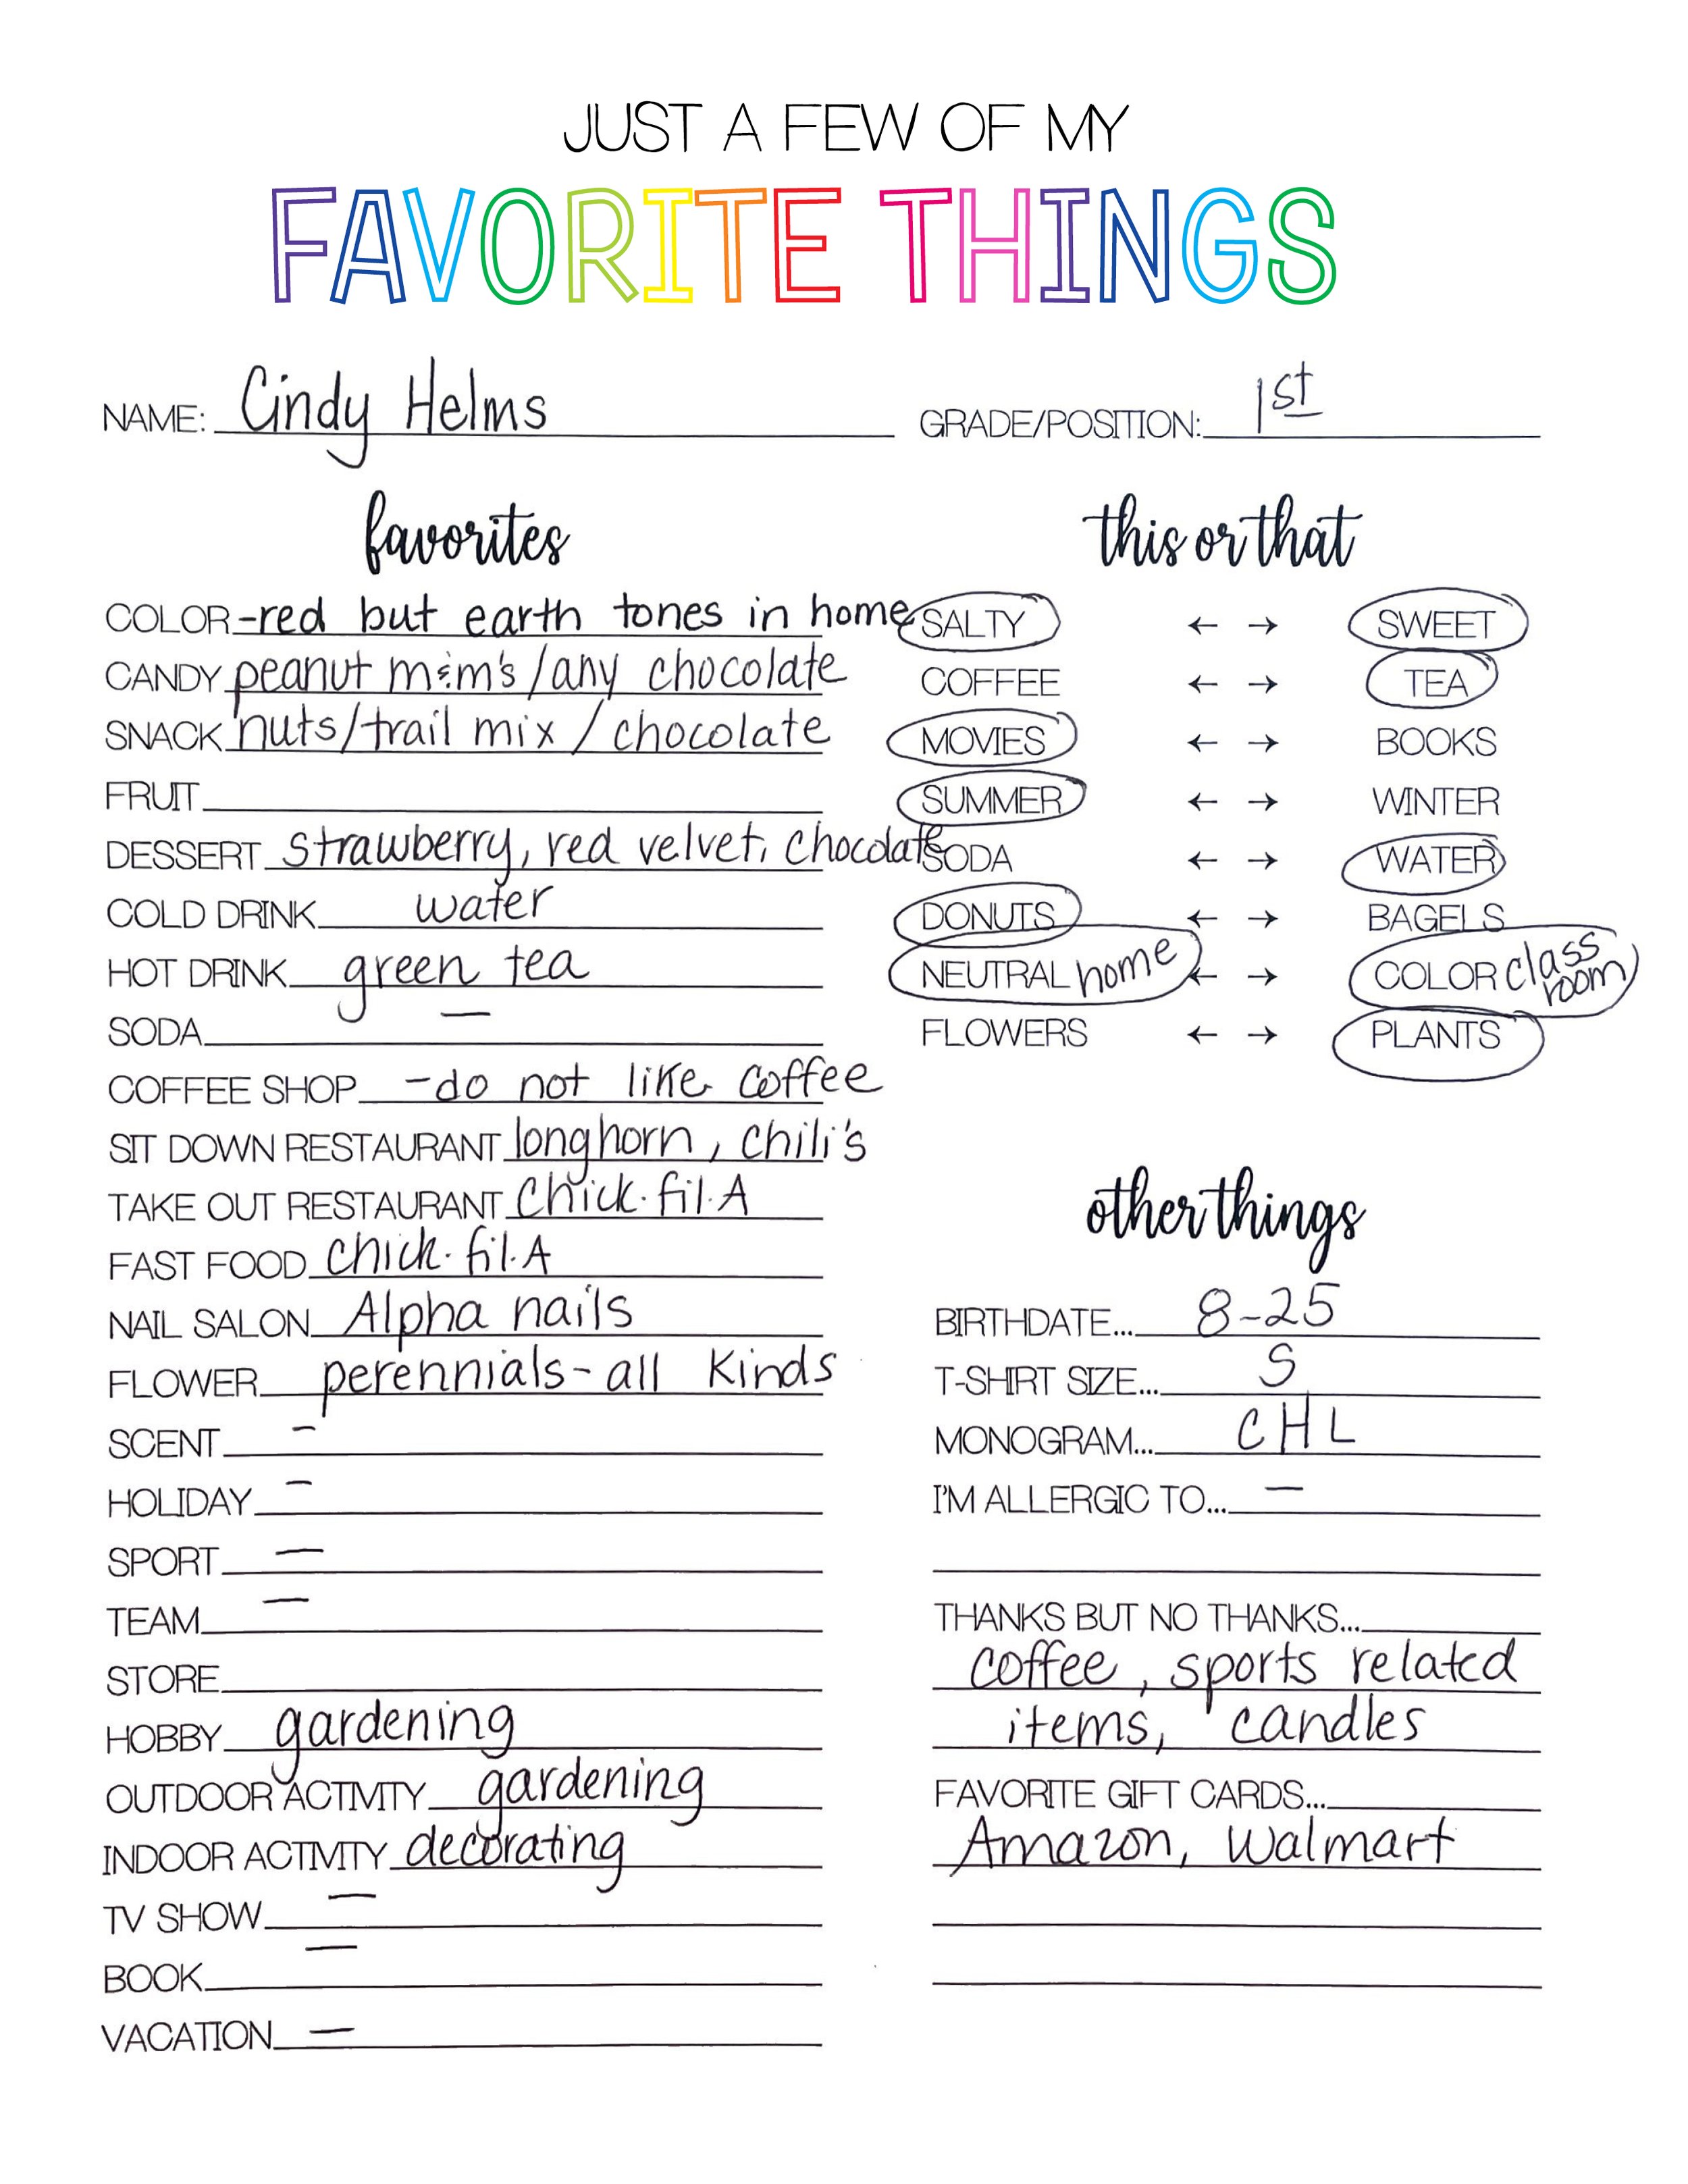 JUST A FEW OF MY
FAVORITE THINGS
NAME: Cindy Helms GRADE/POSITION: 1st
favorites
COLOR -red but earth tones in home
CANDY peanut m&m's / any chocolate
SNACK nuts/trail mix / chocolate
FRUIT
DESSERT strawberry, red velvet, chocolate
COLD DRINK water
HOT DRINK green tea
SODA —
COFFEE SHOP -do not like coffee
SIT DOWN RESTAURANT longhorn, chili's
TAKE OUT RESTAURANT Chick-fil-A
FAST FOOD Chick-fil-A
NAIL SALON Alpha nails
FLOWER perennials- all kinds
SCENT -
HOLIDAY -
SPORT —
TEAM —
STORE
HOBBY gardening
OUTDOOR ACTIVITY gardening
INDOOR ACTIVITY decorating
TV SHOW —
BOOK —
VACATION —
this or that
SALTY ← → SWEET
COFFEE ← → TEA
MOVIES ← → BOOKS
SUMMER ← → WINTER
SODA ← → WATER
DONUTS ← → BAGELS
NEUTRAL home ← → COLOR class room
FLOWERS ← → PLANTS
other things
BIRTHDATE... 8-25
T-SHIRT SIZE... S
MONOGRAM... CHL
I'M ALLERGIC TO... —
THANKS BUT NO THANKS...
coffee, sports related
items, candles
FAVORITE GIFT CARDS...
Amazon, Walmart